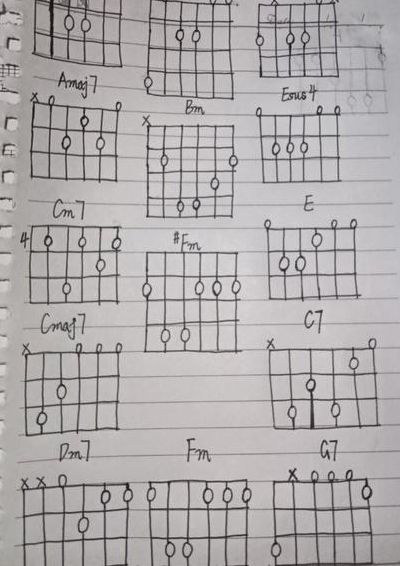 Amaj7
Bm
Esus4
x
x
Cm7
E
4
#Fm
Cmaj7
C7
x
x
Dm7
Fm
G7
x x
x